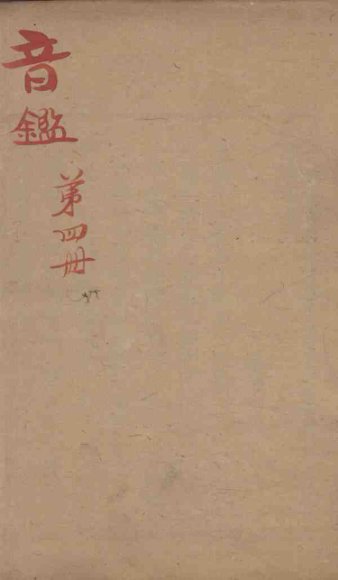 音鑑
第四冊